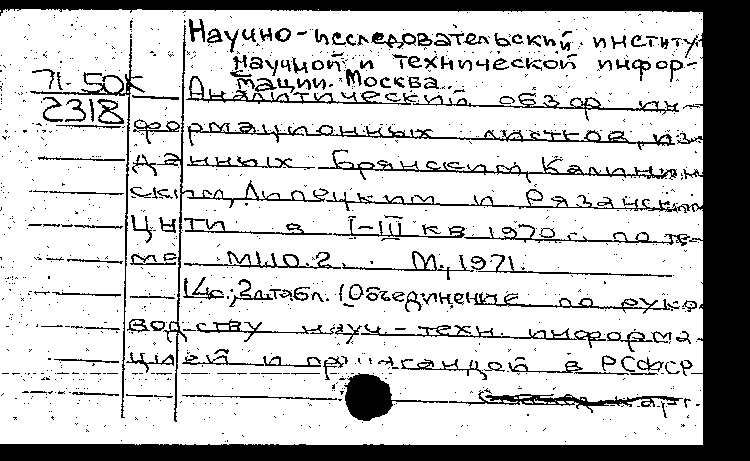 Научно-исследовательский институт
научной и технической инфор-
мации. Москва.
71-50К
2318
Аналитический обзор ин-
формационных листков, из-
данных Брянским, Калинин-
ским, Липецким и Рязанским
ЦНТИ в I-III кв 1970 г. по те-
ме М110.2. М., 1971.
14с.; 2л.табл. (Объединение по руко-
водству науч.-техн. информа-
цией и пропагандой в РСФСР
карт.